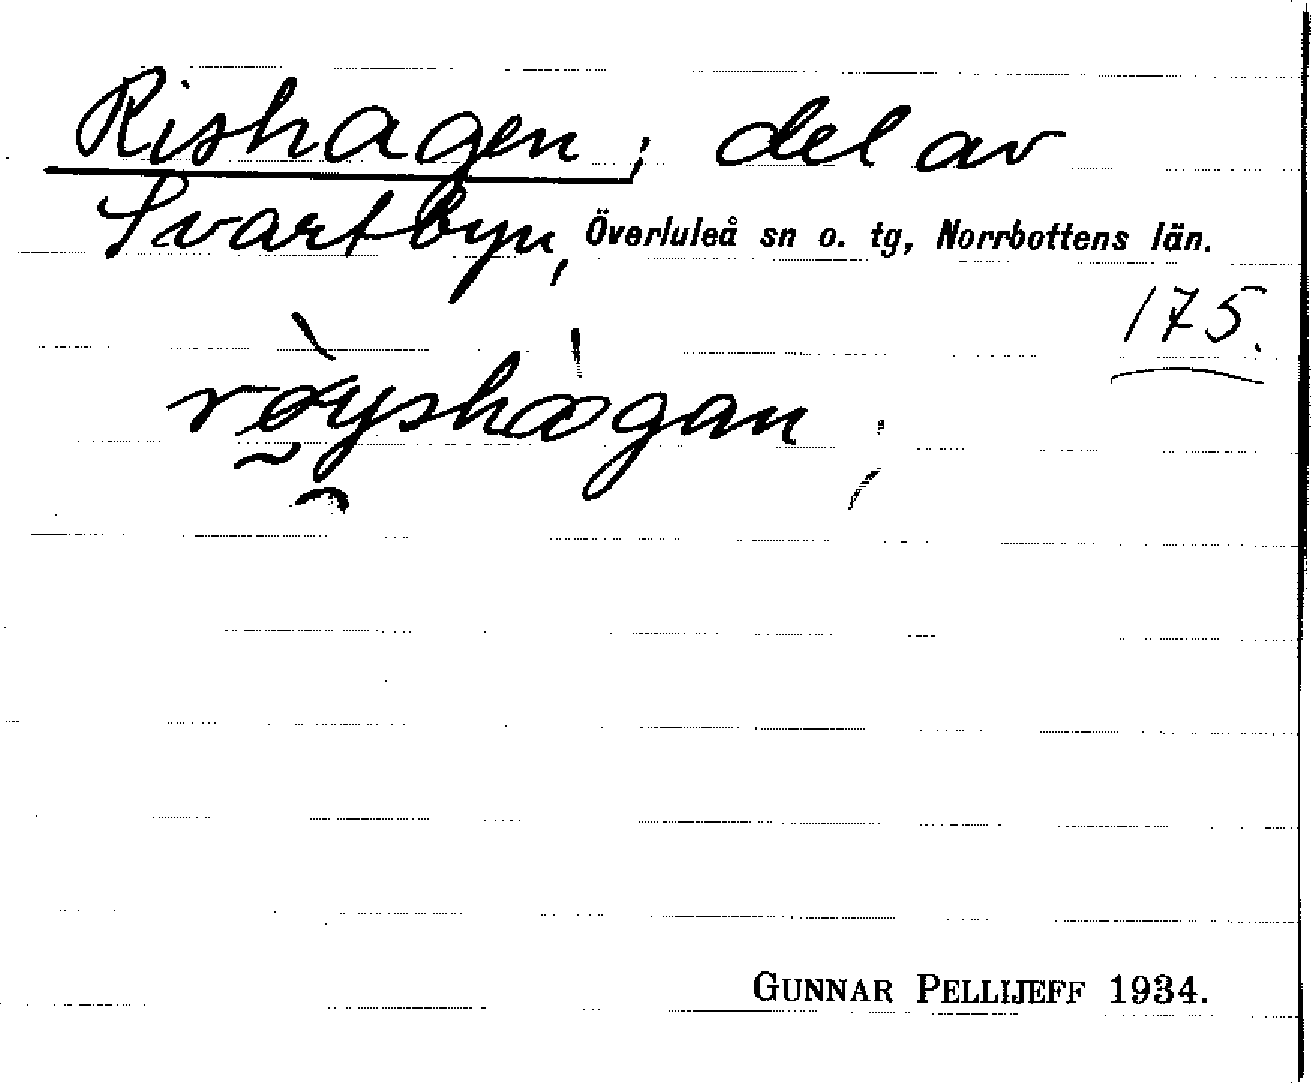 Rishagen; del av
Svartbyn, Överluleå sn o. tg, Norrbottens län.
175.
røyshagan;
GUNNAR PELLIJEFF 1934.